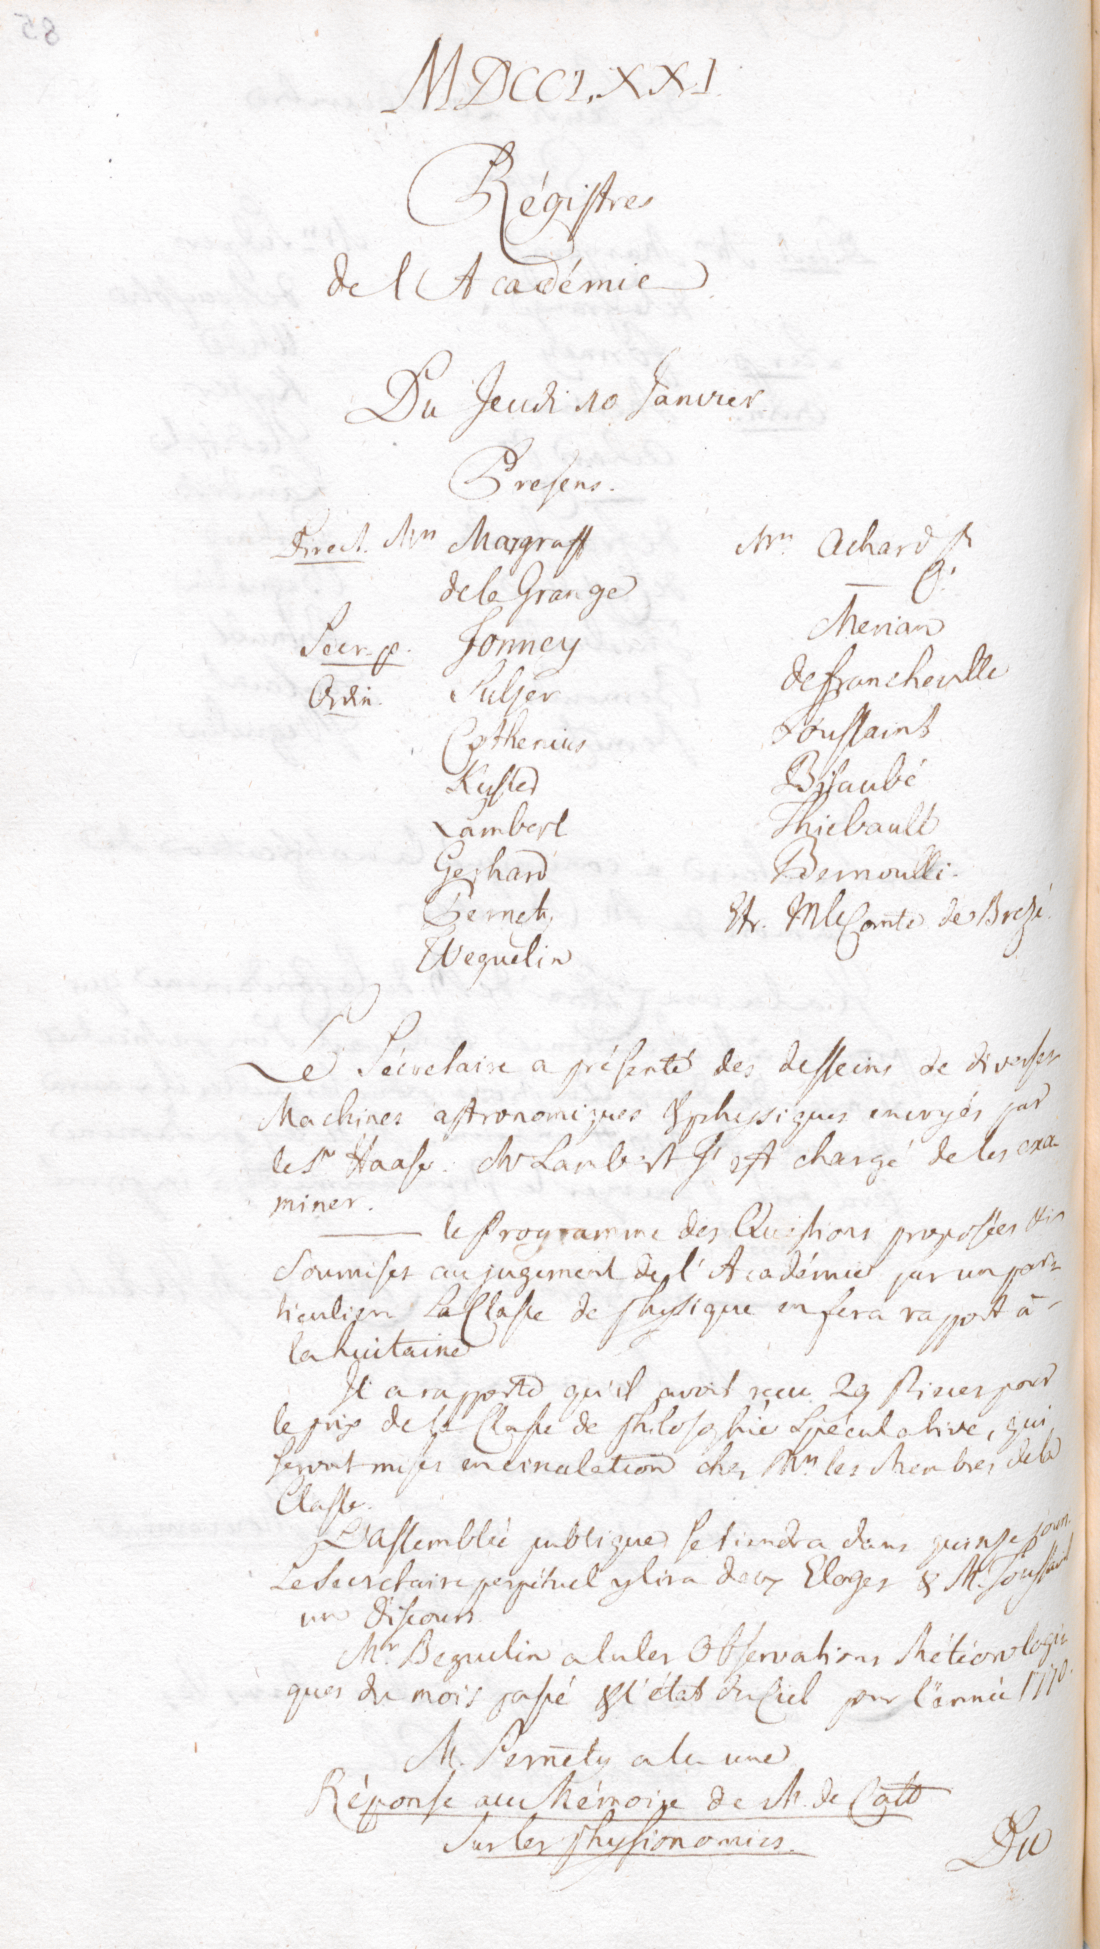 MDCCLXXI
Régistres
de l'Académie
Du Jeudi 10 Janvier.
Presens.
Direct. Mrs Margraff
de la Grange
Secr. p. Formey
Ordin. Sulzer
Cothenius
Lambert
Gerhard
Pernety
Weguelin
Mrs Achard
Merian
de Francheville
Toussaint
Bitaubé
Thiebault
Bernoulli.
Etr. M le Comte de Brezé.
Le Sécretaire a présenté des desseins de diverses
Machines astronomiques & physsiques envoyés par
le Sr Haase. Mr Lambert s'est chargé de les exa
miner.
le Programme des Questions proposées &
soumises au jugement de l'Académie par un par=
ticulier. La Classe de physique en fera rapport à
la huitaine
Il a rapporté qu'il avoit reçu 29 Pieces pour
le prix de la Classe de philosophie Spéculative, qui
seront mises en circulation chez Mrs les Membres de la
Classe.
L'assemblée publique se tiendra dans quinze jours.
Le Secretaire perpétuel y lira deux Eloges & M. Toussaint
un Discours
Mr. Beguelin a lu les Observations Météorologi=
ques du mois passé & l'état du Ciel pour l'année 1770.
M. Pernety a lu une
Réponse au Mémoire de M. de Catt
Sur les physionomies.
Du